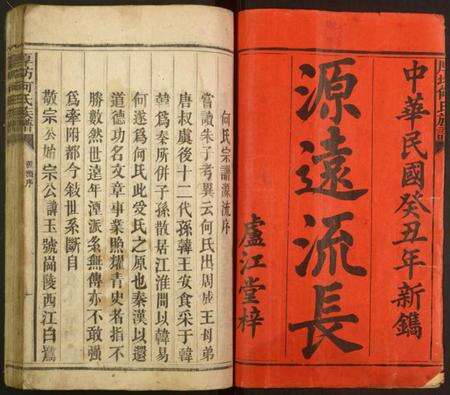 中華民國癸丑年新鐫
源遠流長
盧江堂梓
何氏宗譜源流序
嘗讀朱子考異云何氏出周成王母弟
唐叔虞後十二代孫韓王安食采于韓
韓爲秦所併子孫散居江淮間以韓易
何遂爲何氏此受氏之原也秦漢以還
道德功名文章事業照耀青史者指不
勝數然世遠年湮派系無傳亦不敢強
爲牽附都今敘世系斷自
敬宗公始宗公諱玉號崗陵西江白鷺
坊何氏族譜
源流序